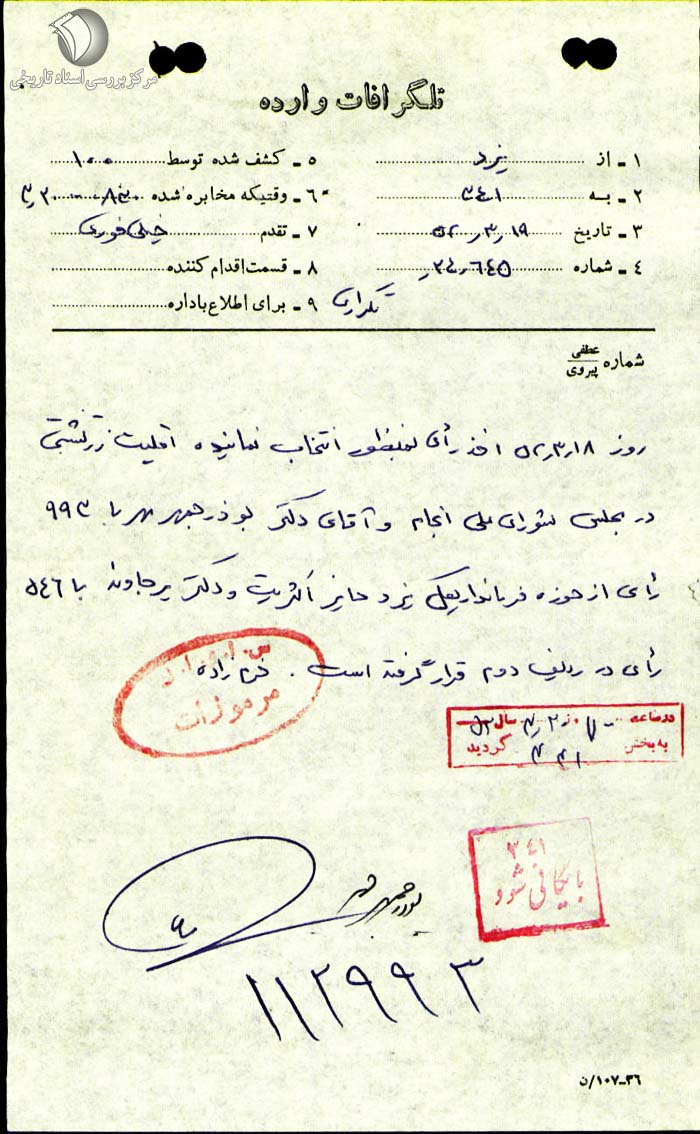 مرکز بررسی اسناد تاریخی
تلگرافات وارده
۱ ـ از یزد
۲ ـ به ۳٤۱
۳ ـ تاریخ ۱۹ر۳ر۵۲
٤ ـ شماره
۵ ـ کشف شده توسط ۱۰۰۰
۶ ـ وقتیکه مخابره شده ۰۸۳۰
۷ ـ تقدم خیلی فوری
۸ ـ قسمت اقدام کننده
۹ ـ برای اطلاع باداره
تکراری
شماره عطفی
پیروی
روز ۵۲٫۳٫۱۸ اخذ رأی بمنظور انتخاب نماینده اقلیت زرتشتی
در مجلس شورای ملی انجام و آقای دکتر بوذرجمهر مهر با ۹۹۳
رأی از حوزه فرمانداریکل یزد حایز اکثریت و دکتر پرجاوند با ۵٤۶
رأی در ردیف دوم قرار گرفته است . خرم زاده
مرموزات
در ساعت روز سال
به بخش ۳٤۱ گردید
۳٤۱
بایگانی شود
بوذرجمهر مهر
۱۱۲۹۹۳
۳۶-۱۰۷/ن